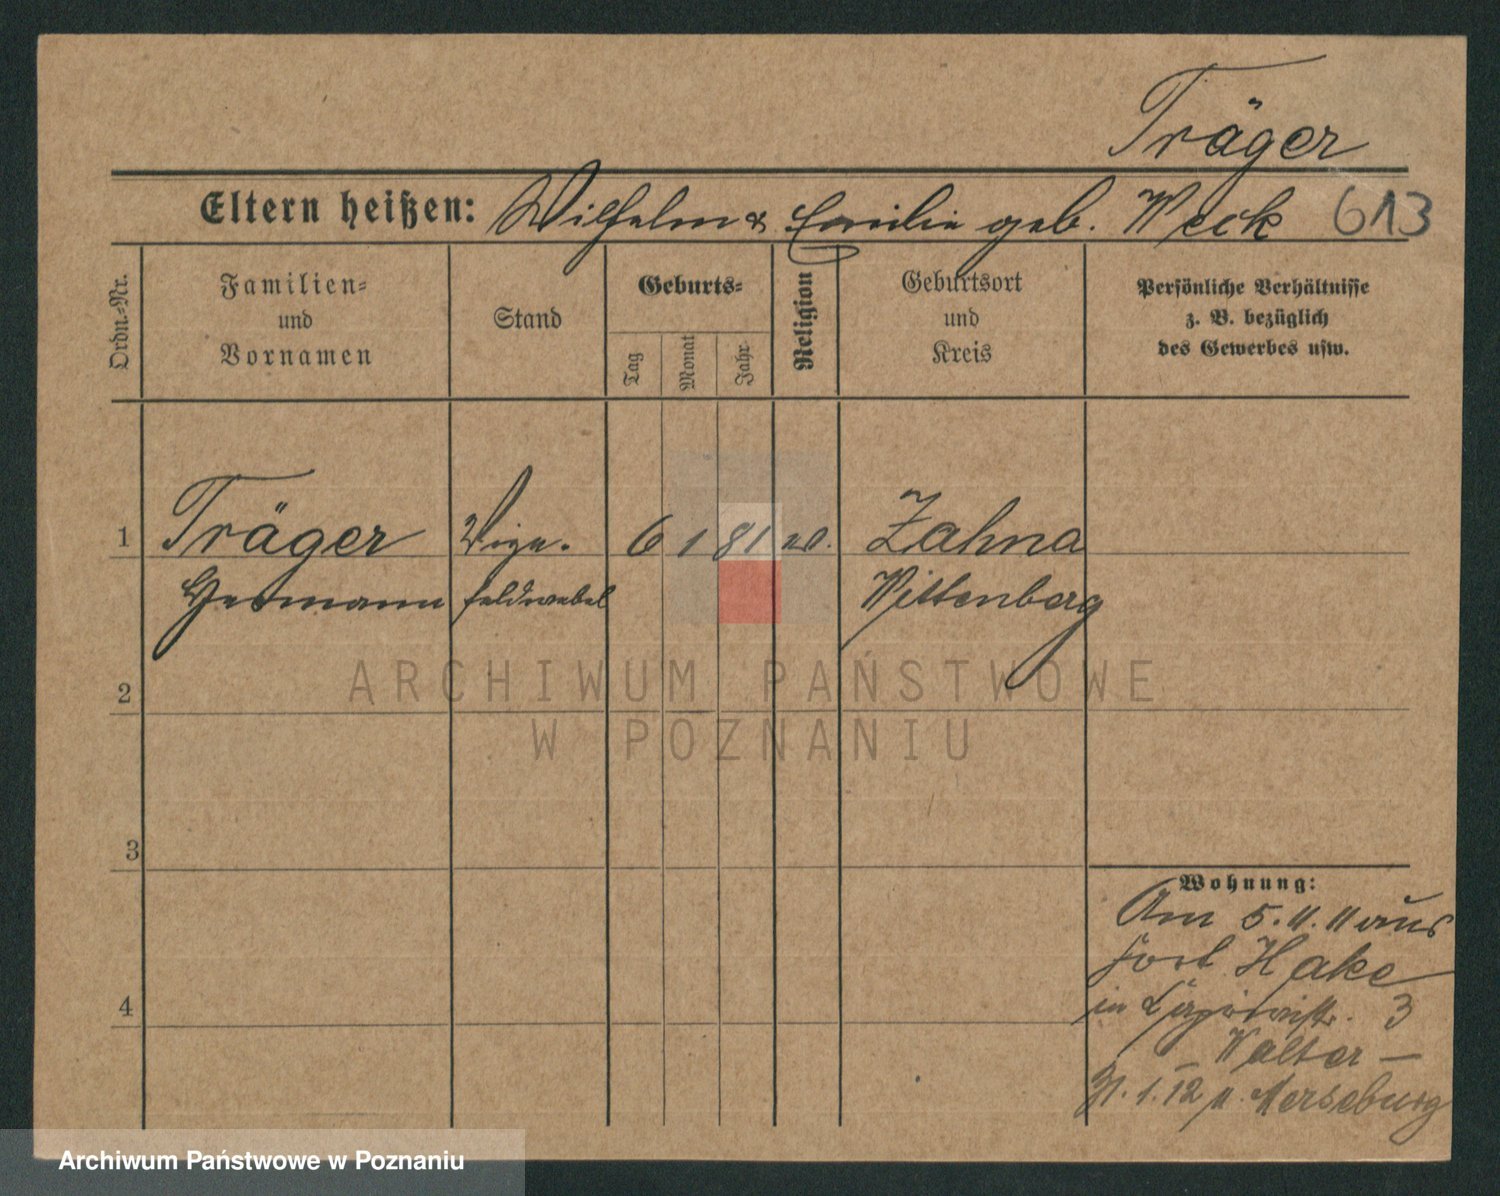 Träger
Eltern heißen: Wilhelm & Emilie geb. Weck 613
Ordn.-Nr.
Familien-
und
Vornamen
Stand
Geburts-
Tag
Monat
Jahr
Religion
Geburtsort
und
Kreis
Persönliche Verhältnisse
z. B. bezüglich
des Gewerbes usw.
1 Träger Vize- 6 1 81 ev. Zahna
Hermann feldwebel Wittenberg
2
3
4
Wohnung:
Am 5.11.11 aus
Fort Hake
in 3
– Walter –
31.1.12 n. Merseburg
ARCHIWUM PAŃSTWOWE
W POZNANIU
Archiwum Państwowe w Poznaniu